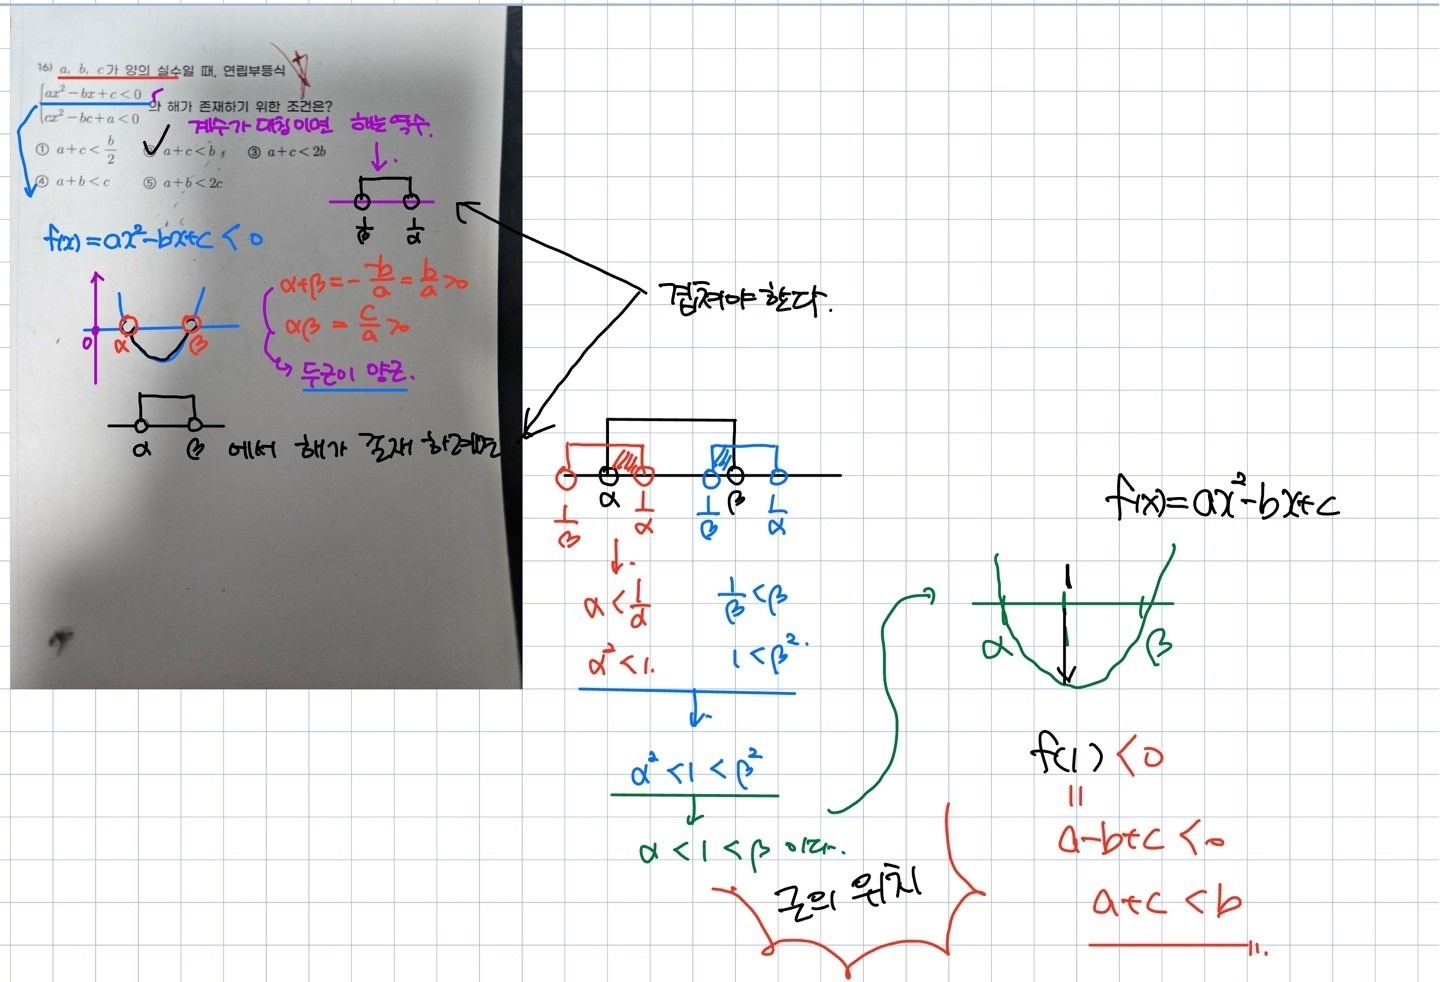 16) a, b, c가 양의 실수일 때, 연립부등식
{ax² − bx + c < 0
cx² − bc + a < 0 의 해가 존재하기 위한 조건은?
계수가 대칭이면 해는 역수.
① a + c < b/2 ② a + c < b ③ a + c < 2b
④ a + b < c ⑤ a + b < 2c
1/β 1/α
f(x) = ax² − bx + c < 0
α + β = − −b/a = b/a > 0
αβ = c/a > 0
두근이 양근.
0 α β
α β 에서 해가 존재 하려면
겹쳐야 한다.
1/β α 1/α 1/β β 1/α
α < 1/α 1/β < β
α² < 1. 1 < β².
α² < 1 < β²
α < 1 < β 이다.
근의 위치
f(x) = ax² − bx + c
1
α β
f(1) < 0
=
a − b + c < 0
a + c < b